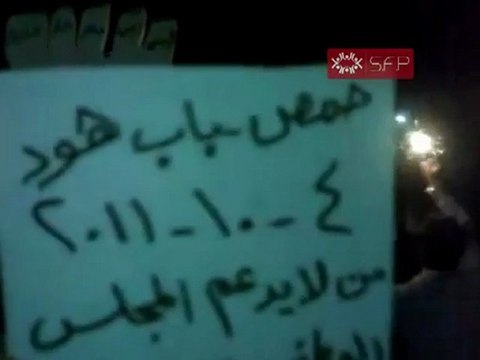 SFP
حمص باب هود
٤-١٠-٢٠١١
من لا يدعم المجلس